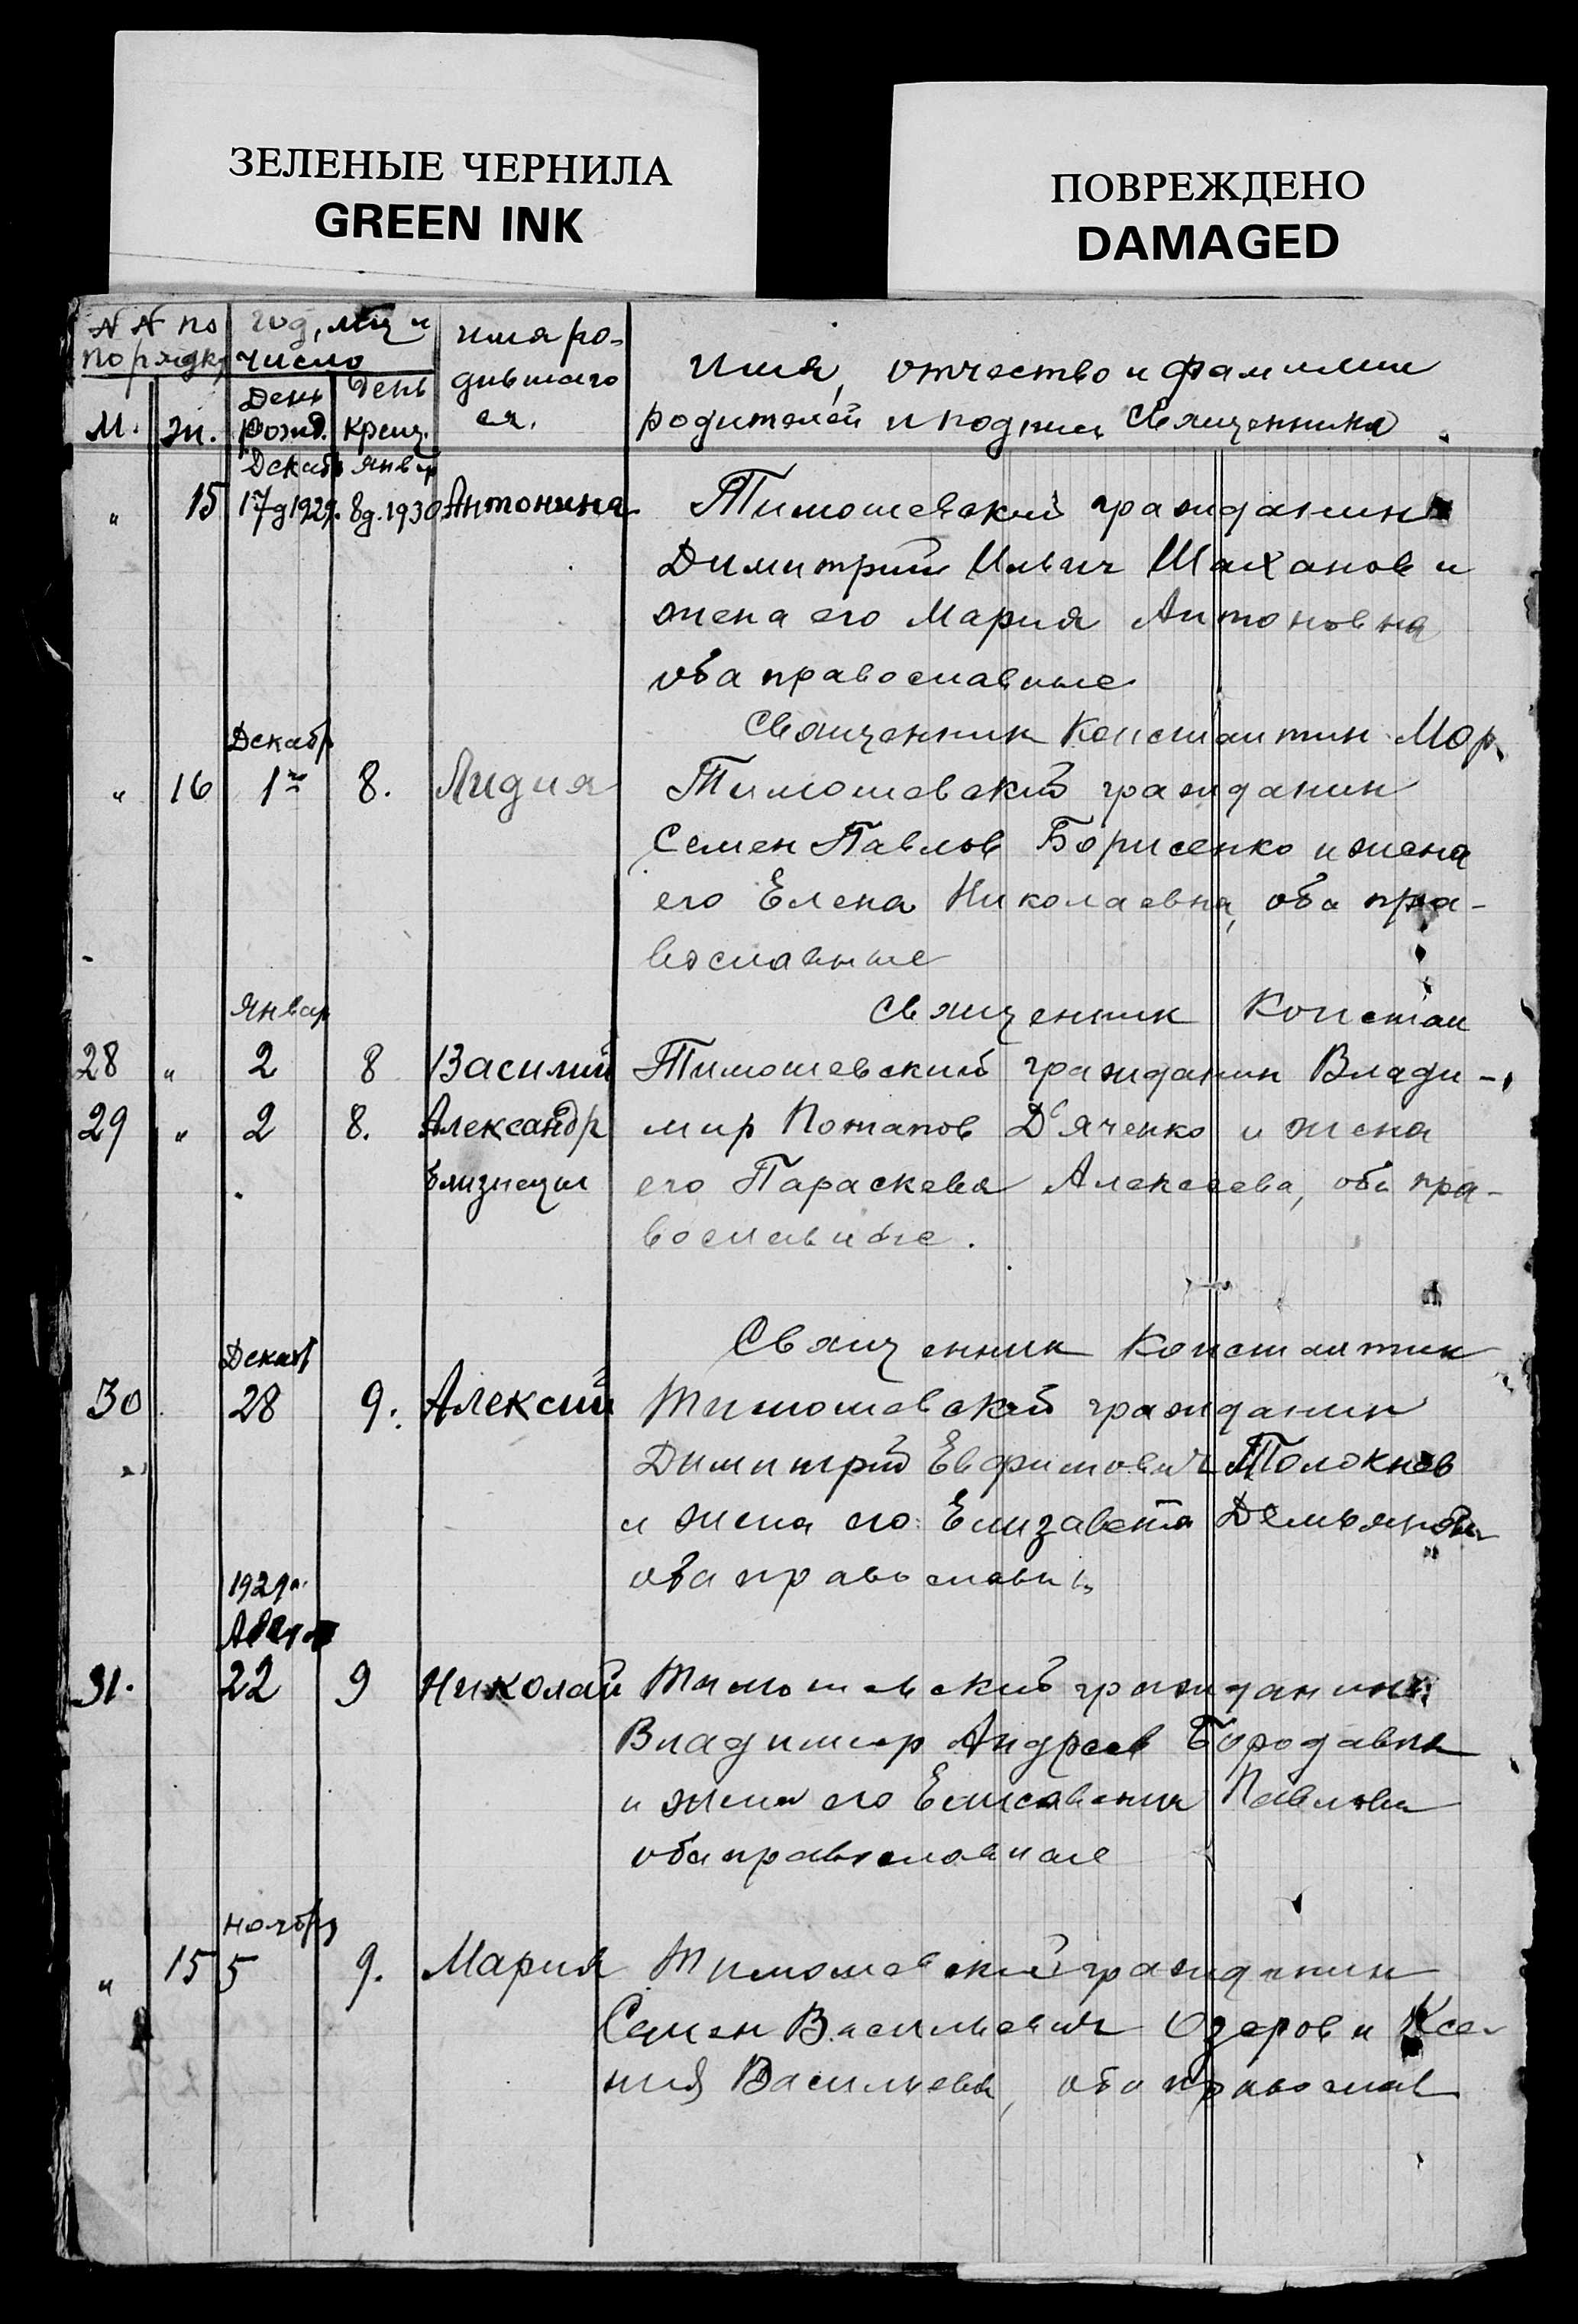 ЗЕЛЕНЫЕ ЧЕРНИЛА
GREEN INK
ПОВРЕЖДЕНО
DAMAGED
N N по порядк,
Год, мц и число
М.
Ж.
День рожд.
День крещ.
имя ро-
дившаго
ся.
Имя, отчество и фамилии
родителей и подпись Священника.
Декабр Январ
" 15 17д1929г. 8д.1930 Антонина Тимошевский гражданин
Димитрий Ильич Шаханов и
жена его Мария Антоновна
оба православные
Священник Константин Мор
Декабр
" 16 1го 8. Лидия Тимошевский гражданин
Семен Павлов Борисенко и жена
его Елена Николаевна, оба пра-
вославные
Январ
Священник Констан
28 " 2 8 Василий Тимошевский гражданин Влади-
29 " 2 8. Александр мир Потапов Д'яченко и жена
близнецы его Параскева Алексеева, оба пра-
вославные.
Священник Константин
Декаб
30 28 9. Алексий Тимошевский гражданин
Димитрий Евфимович Толокнев
и жена его Елизавета Демьянов
оба православн
1929г.
Август
31. 22 9 Николай Тимошевский гражданин
Владимир Андреев Бородавка
и жена его Елисавета Павлова
оба православные
ноябр
" 15 5 9. Мария Тимошевский гражданин
Семен Васильевич Озеров и Ксе-
ния Васильева, оба православ